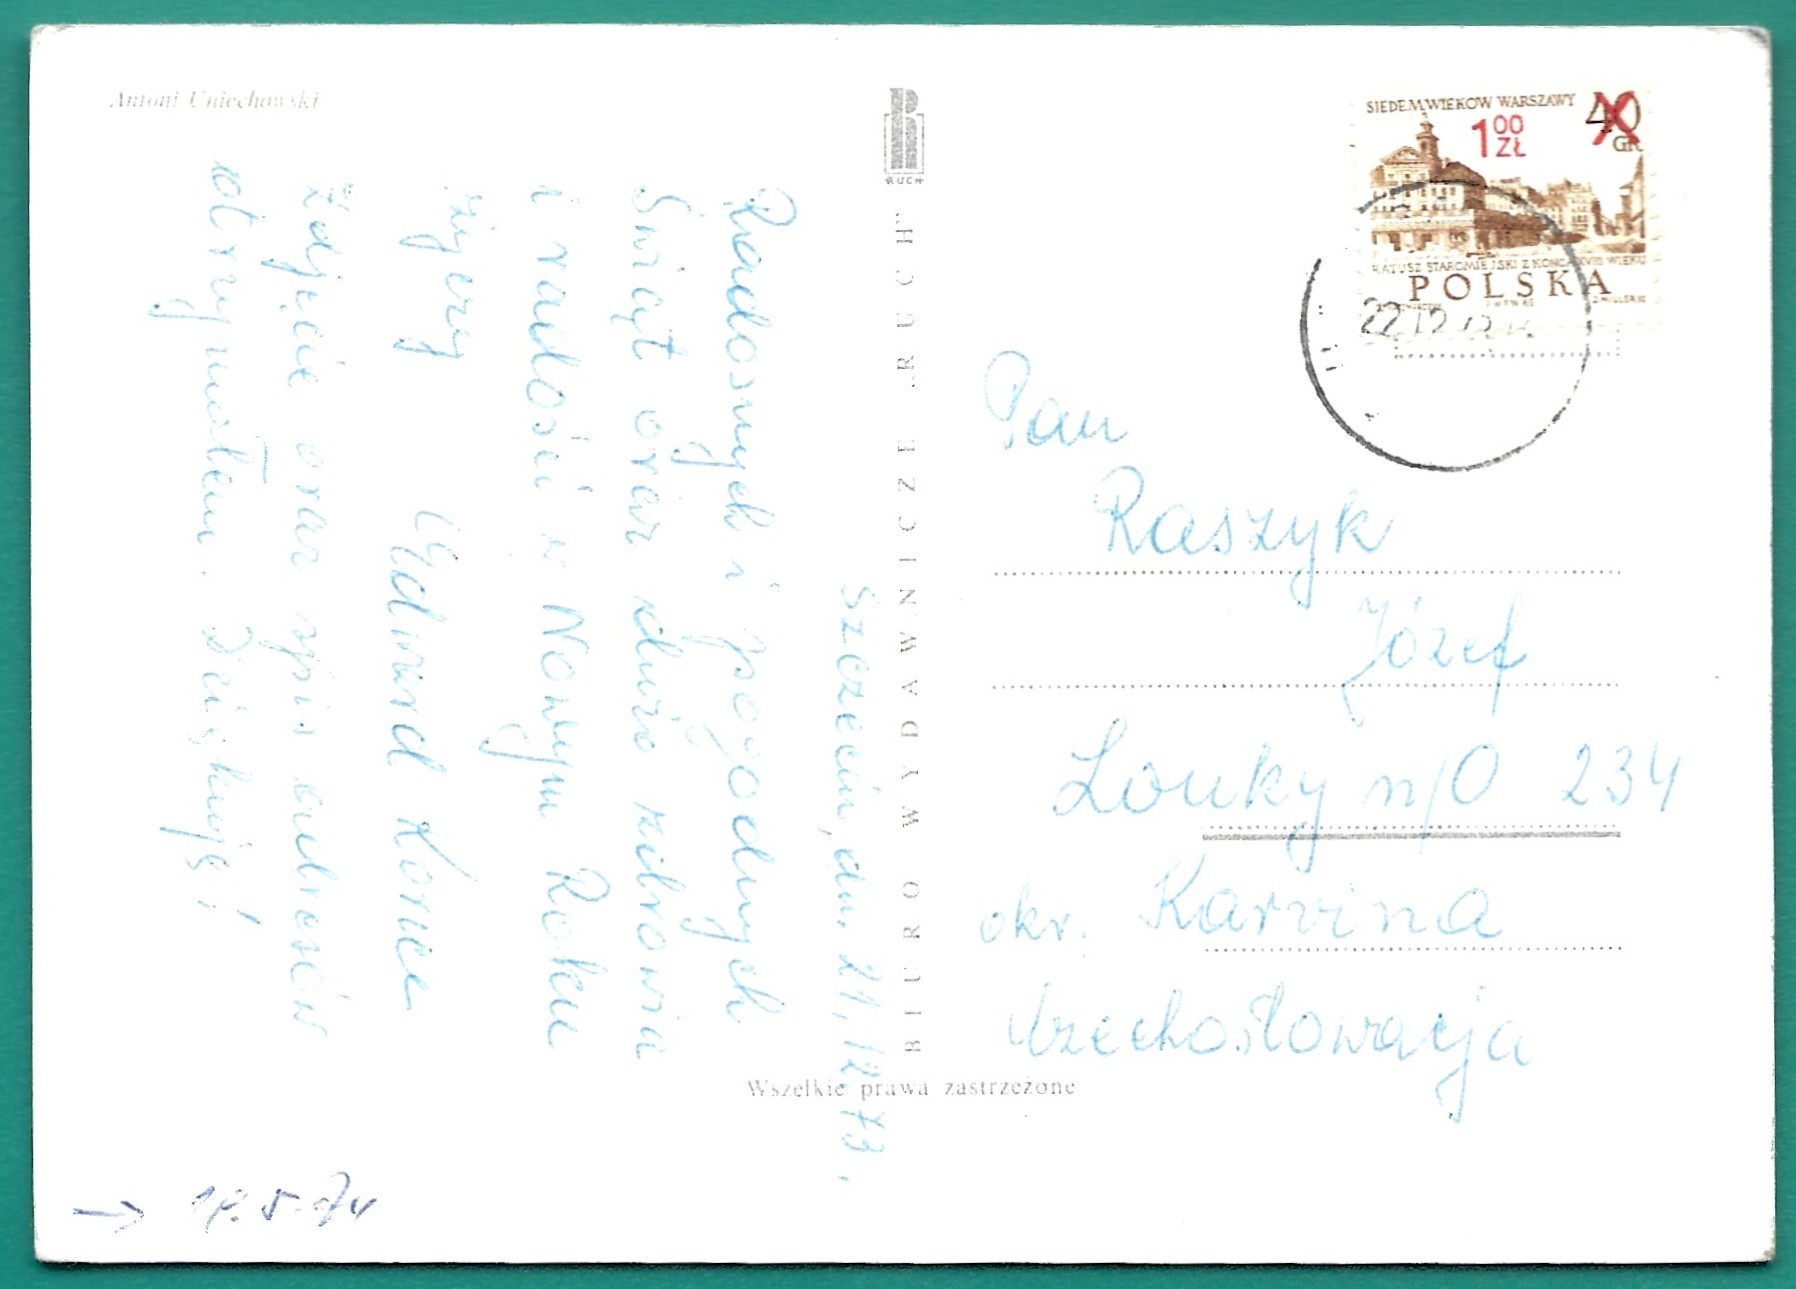 Antoni Uniechowski
RUCH
BIURO WYDAWNICZE „RUCH"
Wszelkie prawa zastrzeżone
Szczecin, dn. 21.12.73.
Radosnych i pogodnych
Świąt oraz dużo zdrowia
i radości w Nowym Roku
życzy
Edward Konce
Zdjęcie oraz spis adresów
otrzymałem. Dziękuję!
→ 18.5.74
SIEDEM WIEKÓW WARSZAWY
40 GR
1 00 ZŁ
RATUSZ STAROMIEJSKI Z KOŃCA XVIII WIEKU
POLSKA
22.12
Pan
Raszyk
Józef
Louky n/O 234
okr. Karvina
Czechosłowacja